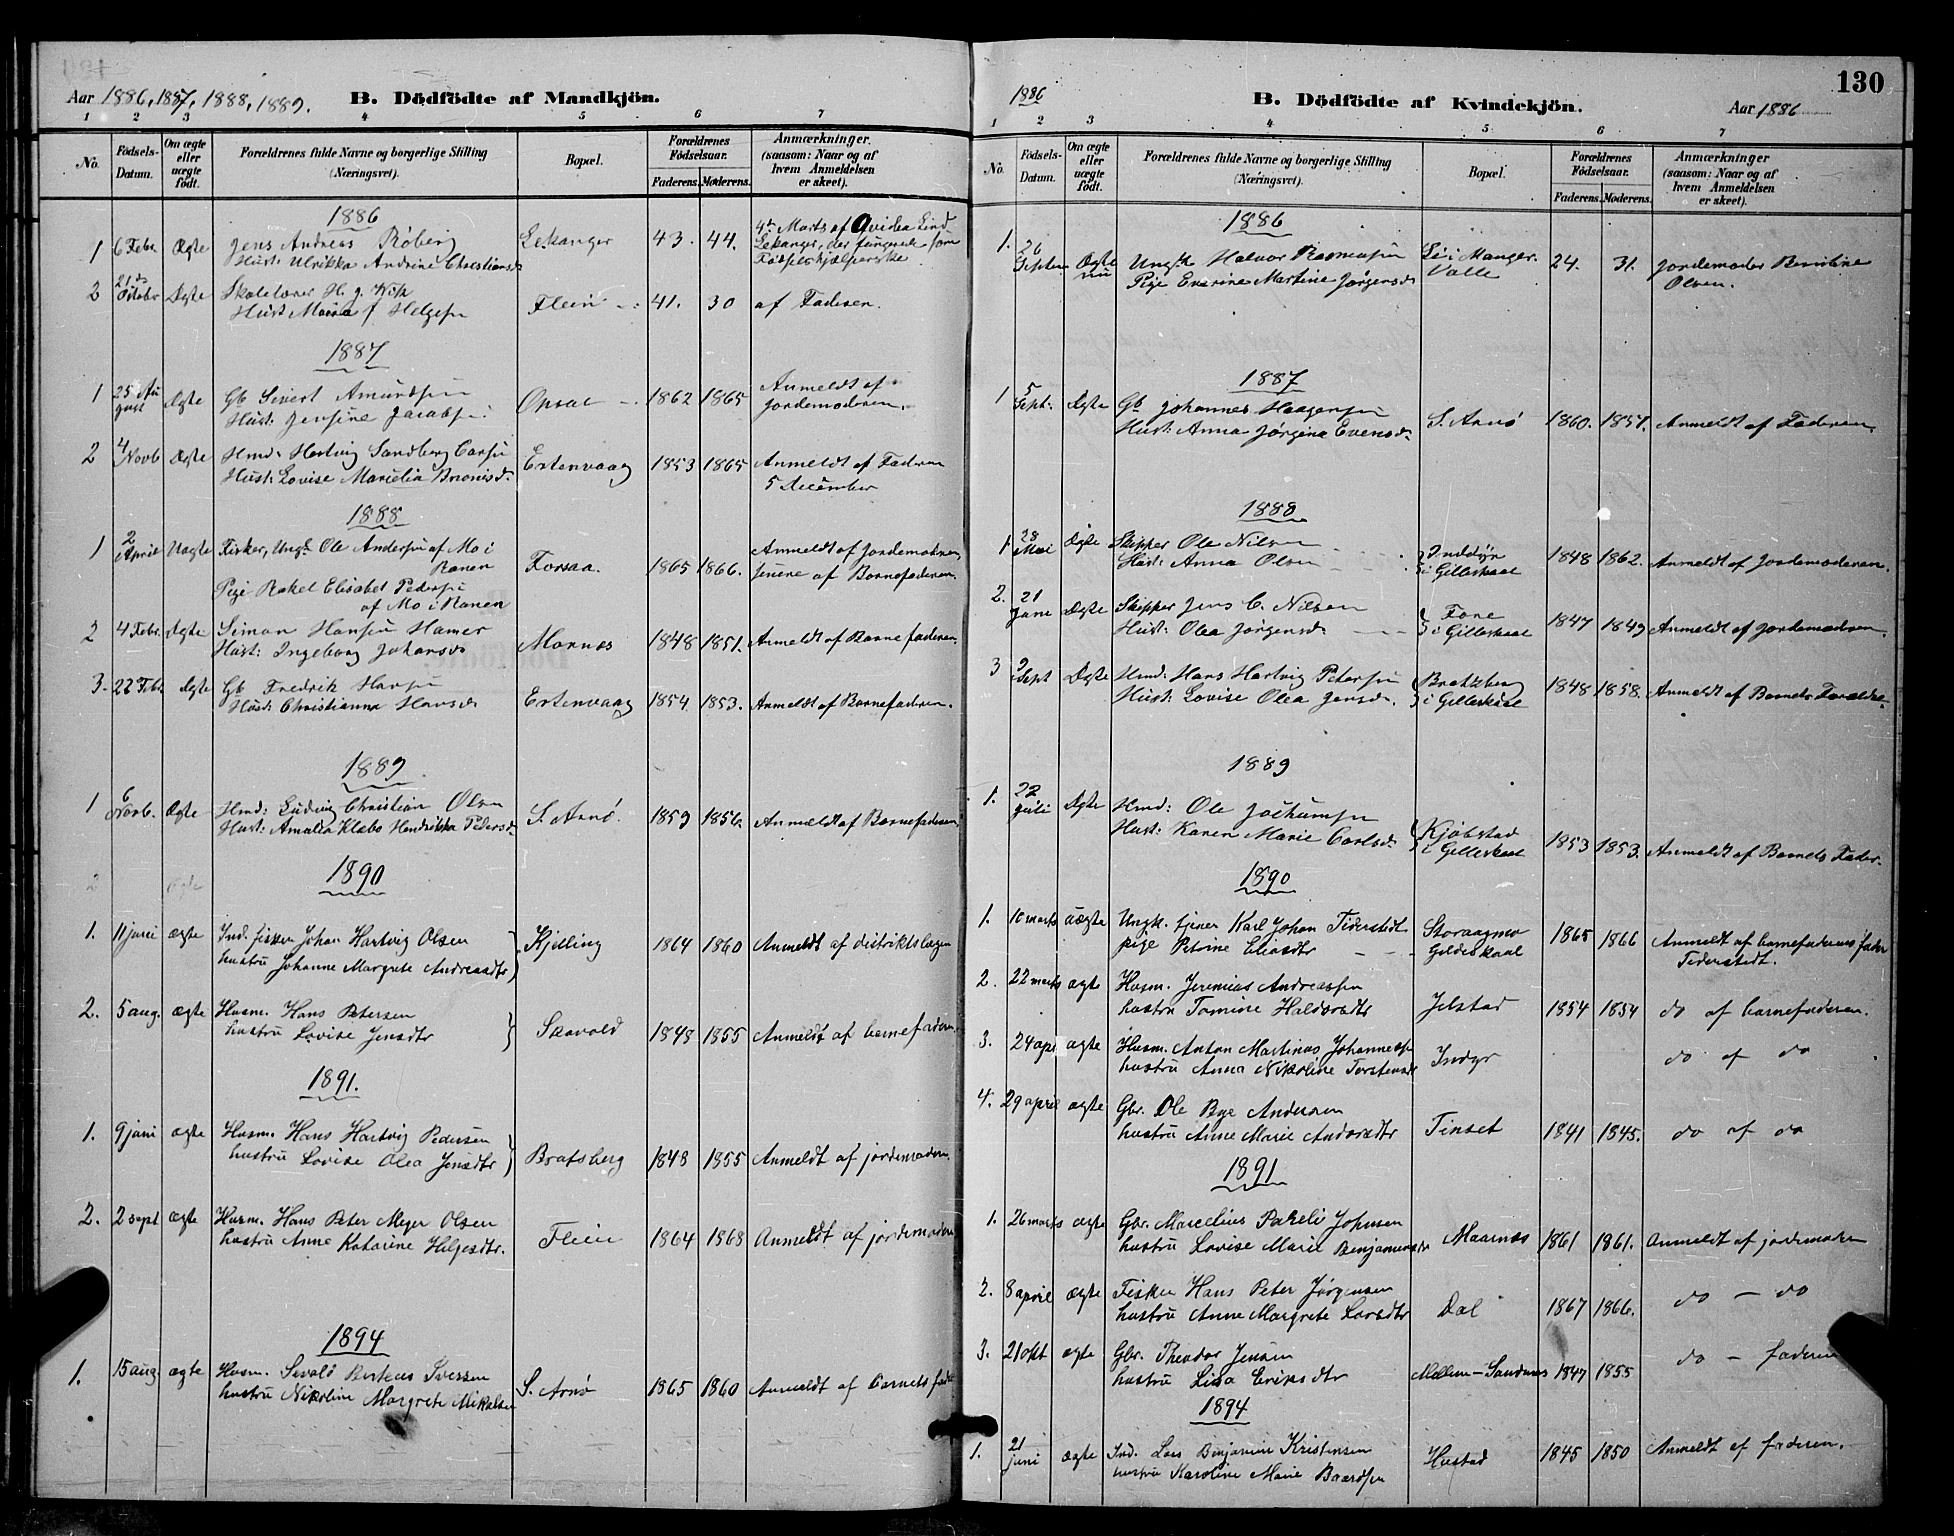 Aar 1886, 1887, 1888, 1889. B. Dödfödte af Mandkjön.
1 2 3 4 5 6 7
No. Födsels-Datum. Om ægte eller uægte födt. Forældrenes fulde Navne og borgerlige Stilling (Næringsvei). Bopæl. Forældrenes Födselsaar. Faderens. Moderens. Anmærkninger. (saasom: Naar og af hvem Anmeldelsen er skeet).
1886
1 6 Febr Ægte Jens Andreas Röberg Lekanger 43. 44. 4de Marts af Lind
Hust: Ulrikka Andrine Christiansd Lekanger, der fungerede som
Fødselshjælperske
2 21de Octobr Ægte Skolelærer H. J. Flein 41. 30 af Faderen.
Hust: J Helgesen
1887
1 25 August Ægte Gb Sivert Amundsen Opsal 1862 1865 Anmeldt af
Hust: Jensine Jacobsen Jordemoderen.
2 4 Novb Ægte Hmd: Hartvig Sandberg Estenvaag 1853 1865 Anmeldt af Faderen
Hust: Lovise 5 December
1888
1 2 April Uægte Fisker, Ungk. Ole Andersen af Mo i Ranen Forsaa. 1865 1866. Anmeldt af Jordemoderen,
senere af Barnefaderen.
Pige Rakel Elisabet Pedersen
af Mo i Ranen
2 4 Febr. Ægte Simon Hansen Hamer Mornæs 1848 1851. Anmeldt af Barnefaderen.
Hust: Ingeborg Johansd
3. 22 Febr Ægte Gb Fredrik Hansen Estenvaag 1854 1853. Anmeldt af Barnefaderen.
Hust: Christianna Hansd
1889
1 6 Novb. Ægte Hmd: Ludvig Christian Olsen S. Arnø. 1859 1856. Anmeldt af Barnefaderen.
Hust: Amalia Klabo Hendrikka Pedersd
2 ægte
1890
1. 11 juni ægte Ind. fisker Johan Hartvig Olsen Kjelling 1864 1860 Anmeldt af distriktslægen
hustru Johanne Margrete Andreasdtr
2. 5 aug. ægte Husm. Hans Petersen Skavold 1848 1855 Anmeldt af barnefaderen
hustru Lovise Jensdtr
1891.
1. 9 juni ægte Husm. Hans Hartvig Pedersen Bratsberg 1848 1855 Anmeldt af jordemoderen.
hustru Lovise Olea Jensdtr
2. 2 sept ægte Husm. Hans Peter Meyer Olsen Flein 1864 1868 Anmeldt af jordemoderen
hustru Anne Katarine Helgesdtr.
1894
1. 15 aug ægte Husm. Sevald Iversen S. Arnø 1865 1860 Anmeldt af barnets fader
hustru Nikoline Margrete Mikalsen
1886 B. Dödfödte af Kvindekjön. Aar 1886 130
1 2 3 4 5 6 7
No. Födsels-Datum. Om ægte eller uægte födt. Forældrenes fulde Navne og borgerlige Stilling (Næringsvei). Bopæl. Forældrenes Födselsaar. Faderens. Moderens. Anmærkninger (saasom: Naar og af hvem Anmeldelsen er skeet).
1886
1. 26 Septem Ungk Halvor Rasmusen 24. 31. Jordemoder
Pige Martine Jørgensd Valle Olsen.
1887
1 5 Sept: Ægte Gb Johannes Haagensen S. Arnø 1860. 1857. Anmeldt af Faderen.
Hust: Anna Jørgina Evensd.
1888
1. 28 Mai Ægte Skipper Ole Nilsen Inddyr 1848 1862. Anmeldt af Jordemoderen.
Hust: Anna Olsen i Gilleskaal
2. 21 June Ægte Skipper Jens C. Nilsen Fore 1847 1849 Anmeldt af Jordemoderen.
Hust: Olea Jørgensd i Gilleskaal
3 9 Sept Ægte Hmd: Hans Hartvig Petersen Bratzberg 1848 1858. Anmeldt af Barnets Forældre
Hust: Lovise Olea Jensd. i Gilleskaal
1889
1. 22 Juli Ægte Hmd: Ole Jochumsen Kjøbstad 1853 1853. Anmeldt af Barnets Fader.
Hust: Karen Marie Carlsd. i Gilleskaal
1890
1. 10 marts uægte Ungk. tjener Karl Johan Tiderstedt Storaagmo 1865 1866 Anmeldt af barnefaderens fader
pige Petrine Eliasdtr Gildeskaal Tiderstedt.
2. 22 marts ægte Husm. Jeremias Andreassen Jelstad 1854 1854 do af barnefaderen.
hustru Tomine Haldorsdtr
3. 24 apr ægte Husm. Anton Martinus Johannessen Indyr do af do
hustru Anna Nikoline Torstensd
4. 29 april ægte Gbr. Ole Bye Andersen Tinset 1841 1845. do af do
hustru Anne Marie Andorsdtr
1891
1. 26 marts ægte Gbr. Marcelius Pareli Johnsen Maarnæs 1861 1861. Anmeldt af jordemoderen
hustru Lovise Marie Benjaminsdtr
2. 8 april ægte Fisker Hans Peter Jørgensen Dal 1867 1866. do — do
hustru Anne Margrete Larsdtr
3. 21 okt ægte Gbr. Theodor Jensen Mellem-Sandnes 1847 1855 do — faderen
hustru Lisa Eriksdtr
1894
1. 21 juni ægte Ind. Lars Benjamin Kristensen Hustad 1845 1850 Anmeldt af faderen.
hustru Karoline Marie Baardsen